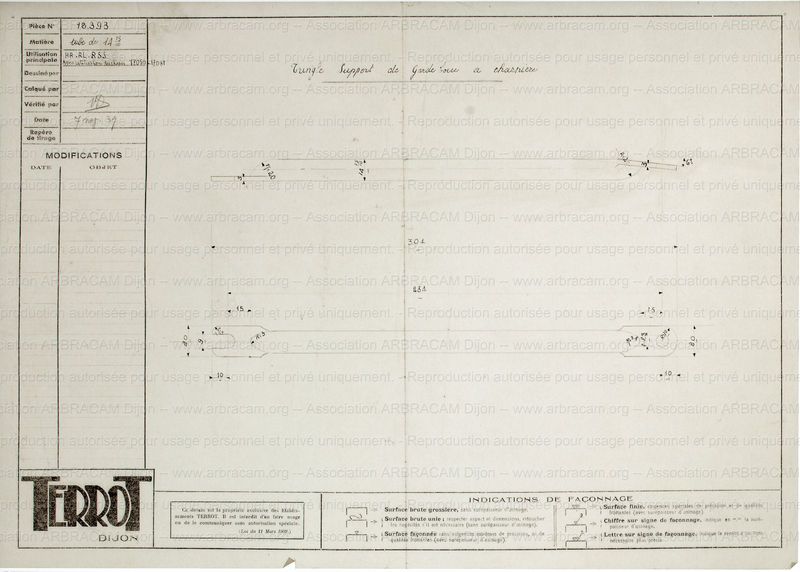 Pièce N° 18.393
Matière tube de 14
Utilisation principale HA.RL.RSS
Dessiné par
Calqué par
Vérifié par
Date 7 39
Repère de tirage
MODIFICATIONS
DATE OBJET
Tringle Support de Garde boue a charnière
3
R:20
3
301
281
15
15
30
9
30
10
10
TERROT
DIJON
Ce dessin est la propriété exclusive des Etablis-
sements TERROT. Il est interdit d'en faire usage
ou de le communiquer sans autorisation spéciale.
(Loi du 11 Mars 1902)
INDICATIONS DE FAÇONNAGE
Surface brute grossière, sans surépaisseur d'usinage.
Surface brute unie ; respecter aspect et dimensions, retoucher
les nagnules s'il est nécessaire (sans surépaisseur d'usinage).
Surface façonnée sans exigences extrêmes de précision, ni de
qualités frottantes (avec surépaisseur d'usinage).
Surface finie, exigences spéciales de précision et de qualités
frottantes (avec surépaisseur d'usinage).
Chiffre sur signe de façonnage, indique en m/m la suré-
paisseur d'usinage.
Lettre sur signe de façonnage,
nécessaire plus précis.
Reproduction autorisée pour usage personnel et privé uniquement. - Reproduction autorisée pour usage personnel et privé uniquement.
www.arbracam.org -- Association ARBRACAM Dijon -- www.arbracam.org -- Association ARBRACAM Dijon